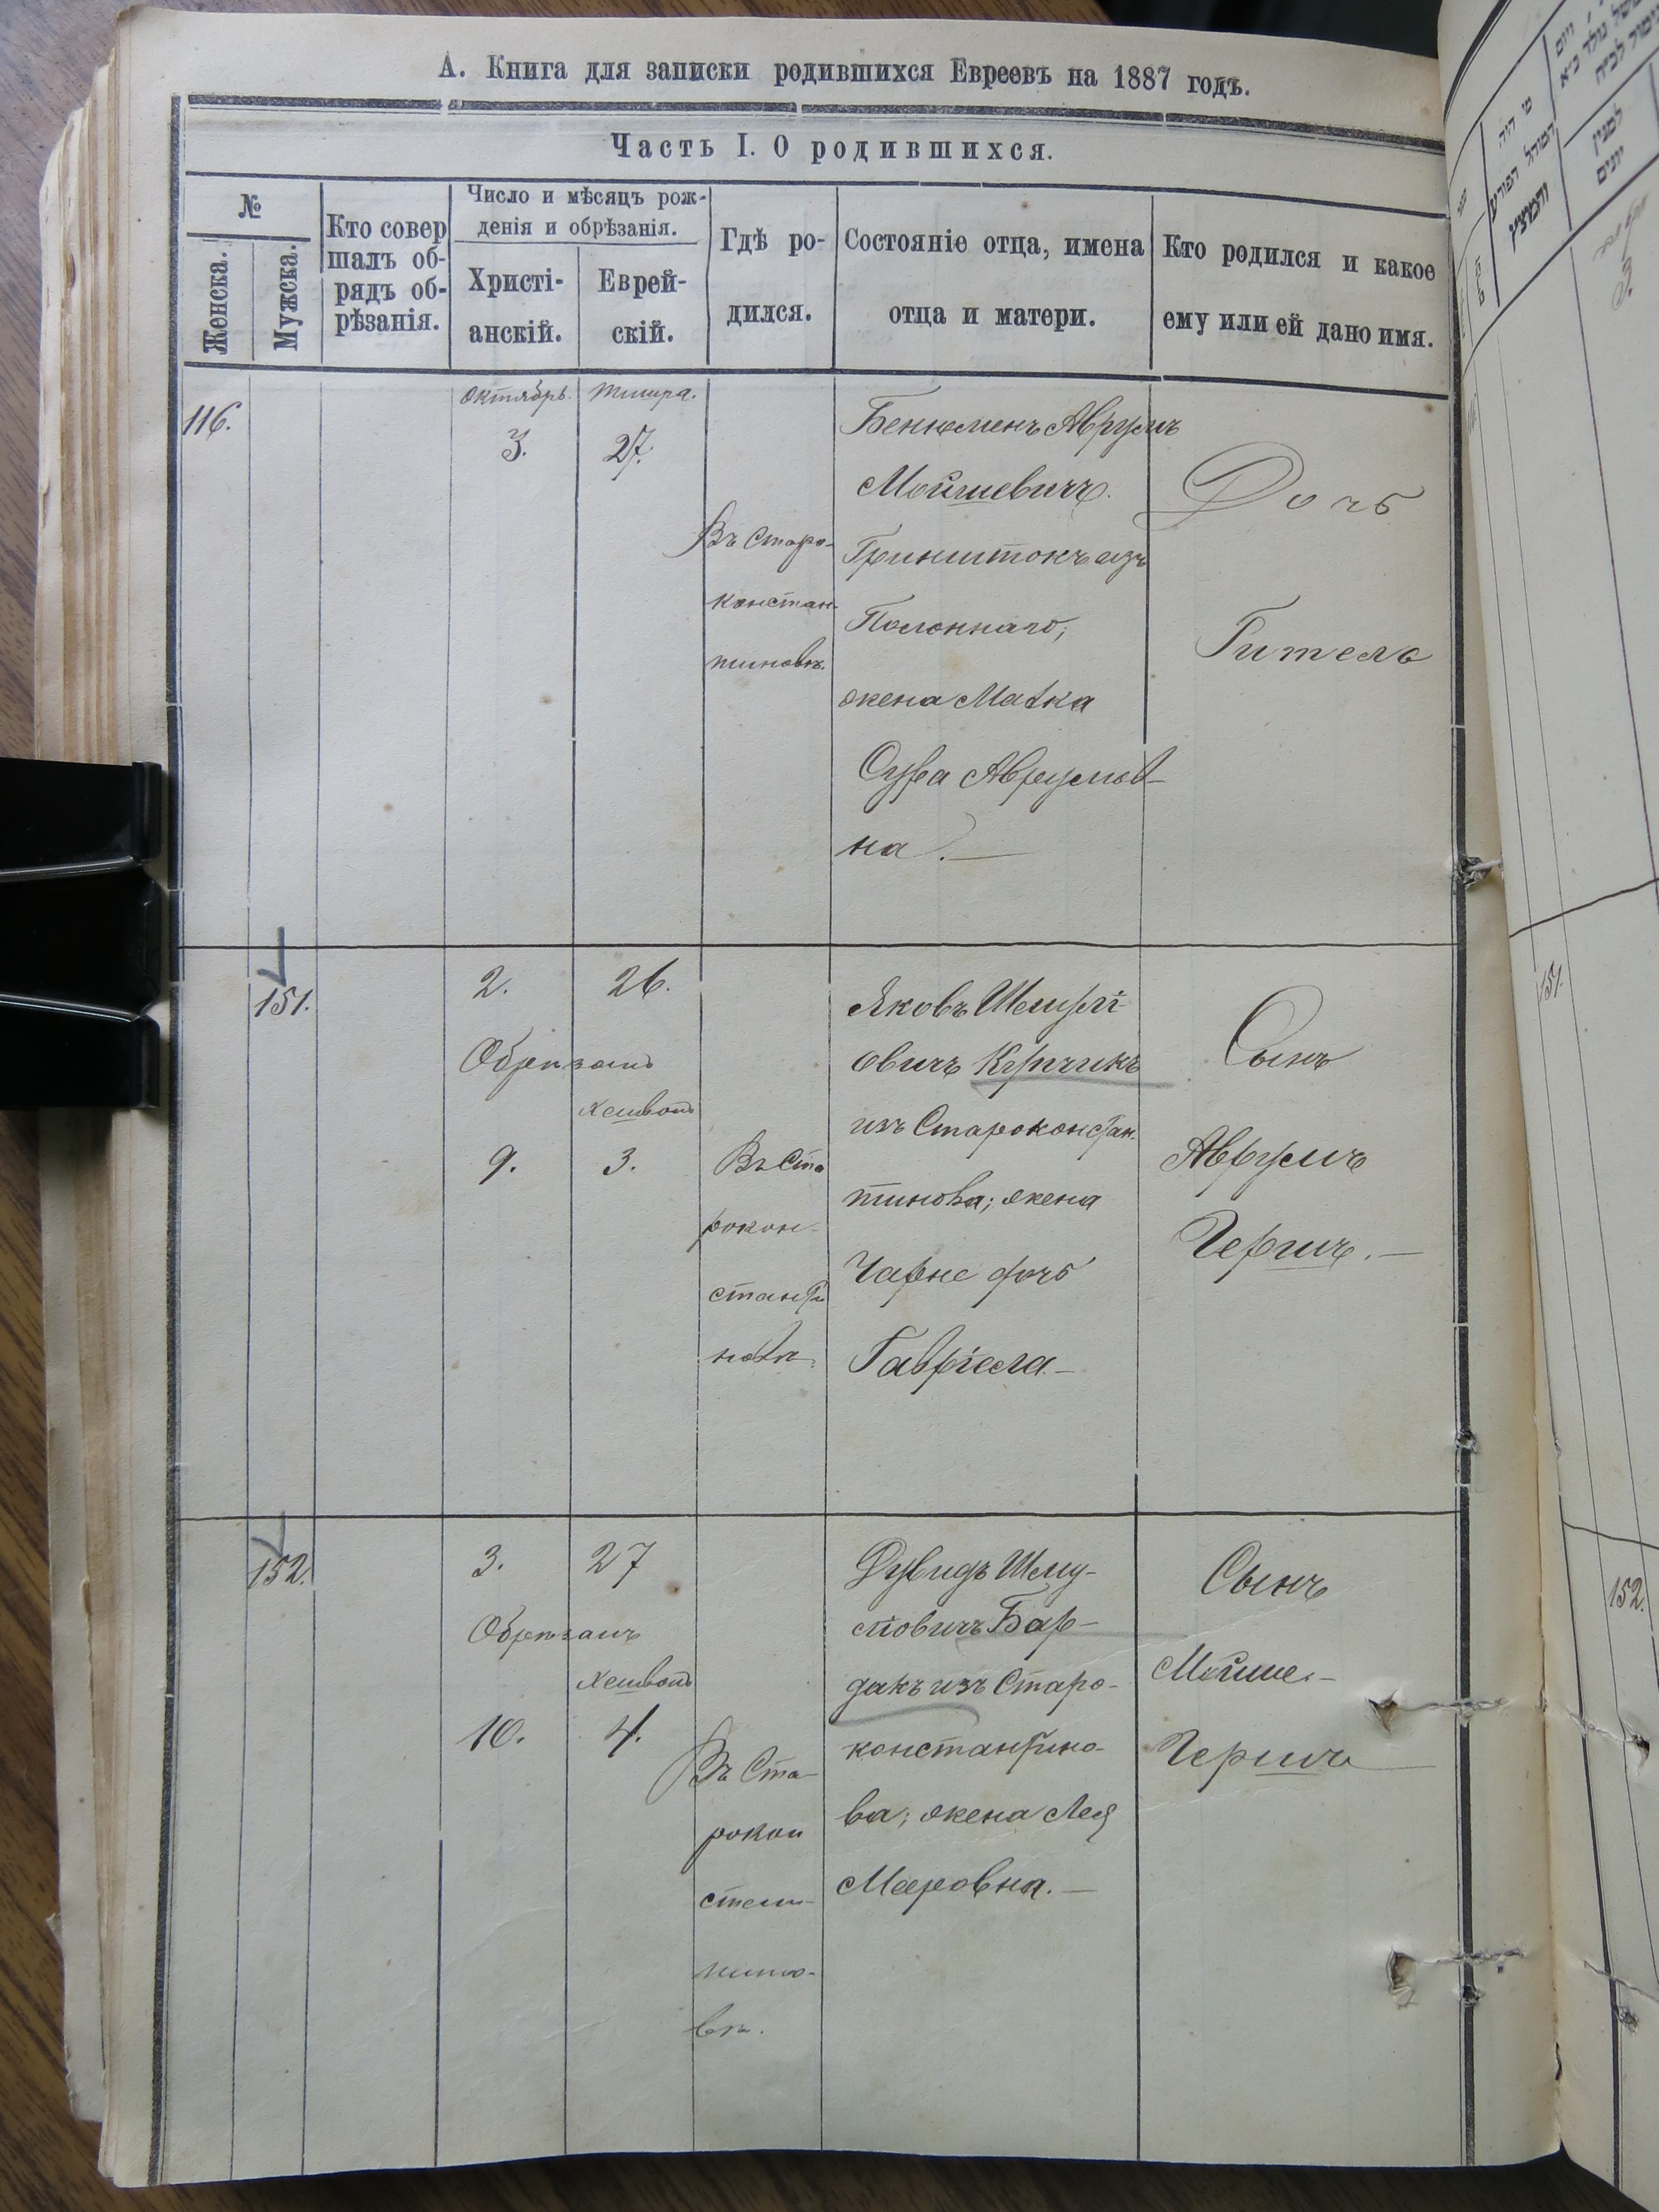 А. Книга для записки родившихся Евреевъ на 1887 годъ.
Часть I. О родившихся.
№
Женска.
Мужска.
Кто совер
шалъ об-
рядъ об-
рѣзанія.
Число и мѣсяцъ рож-
денія и обрѣзанія.
Христі-
анскій.
Еврей-
скій.
Гдѣ ро-
дился.
Состояніе отца, имена
отца и матери.
Кто родился и какое
ему или ей дано имя.
116.
Октябрь.
3.
Тишра.
27.
Въ Старо-
констан-
тиновѣ.
Бенюменъ Аврумъ
Мойшевичъ
Гринштокъ изъ
Полоннаго;
жена Малка
Сура Аврумов-
на.
Дочь
Гитель
151.
2.
26.
Обрезанъ
Хешвонъ
9.
3.
Въ Ста
рокон-
станти
новѣ.
Яковъ
овичъ
изъ Староконстан.
тинова; жена
Чарне дочь
Гавріела
Сынъ
Аврумъ
Гершъ.
152.
3.
27
Обрезанъ
Хешвонъ
10.
4.
Въ Ста-
рокон
стан-
тино-
вѣ.
Дувидъ Шму-
лiовичъ Бар-
дакъ изъ Старо-
константино-
ва; жена Лея
Мееровна.
Сынъ
Мойше-
Гершъ
151.
152.